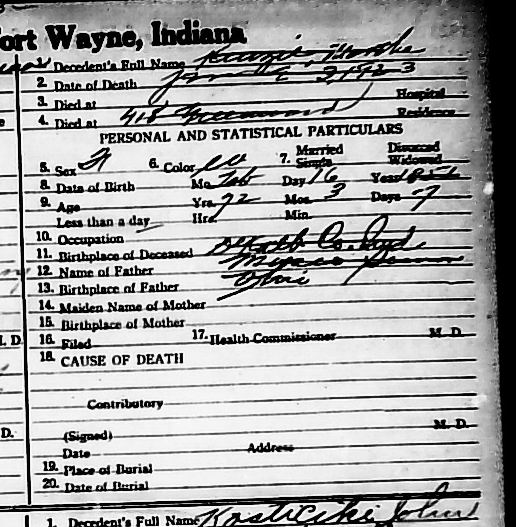 ort Wayne, Indiana
1. Decedent's Full Name
2. Date of Death 3, 192 3
3. Died at Hospital
4. Died at 418 Greenwood Residence
PERSONAL AND STATISTICAL PARTICULARS
5. Sex F 6. Color W 7. Married Single Divorced Widowed
8. Date of Birth Mo. Feb Day 16 Year
9. Age Yrs. 72 Mos. 3 Days
Less than a day Hrs. Min.
10. Occupation
11. Birthplace of Deceased DeKalb Co. Ind
12. Name of Father
13. Birthplace of Father Ohio
14. Maiden Name of Mother
15. Birthplace of Mother
16. Filed 17. Health Commissioner M. D.
18. CAUSE OF DEATH
Contributory
(Signed) M. D.
Date Address
19. Place of Burial
20. Date of Burial
1. Decedent's Full Name John